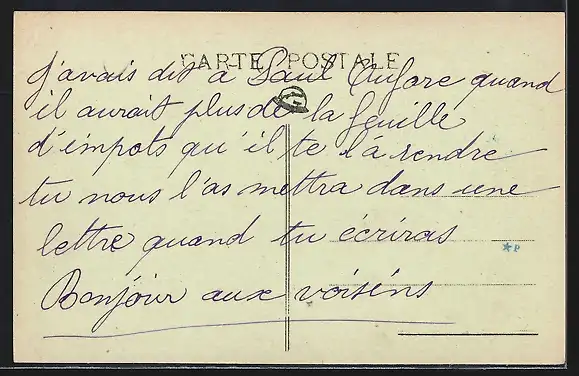 CARTE POSTALE
J'avais dit à Paul Aufore quand
il aurait plus de la feuille
d'impots qu'il te la rendre
tu nous l'as mettra dans une
lettre quand tu écriras
Bonjour aux voisins